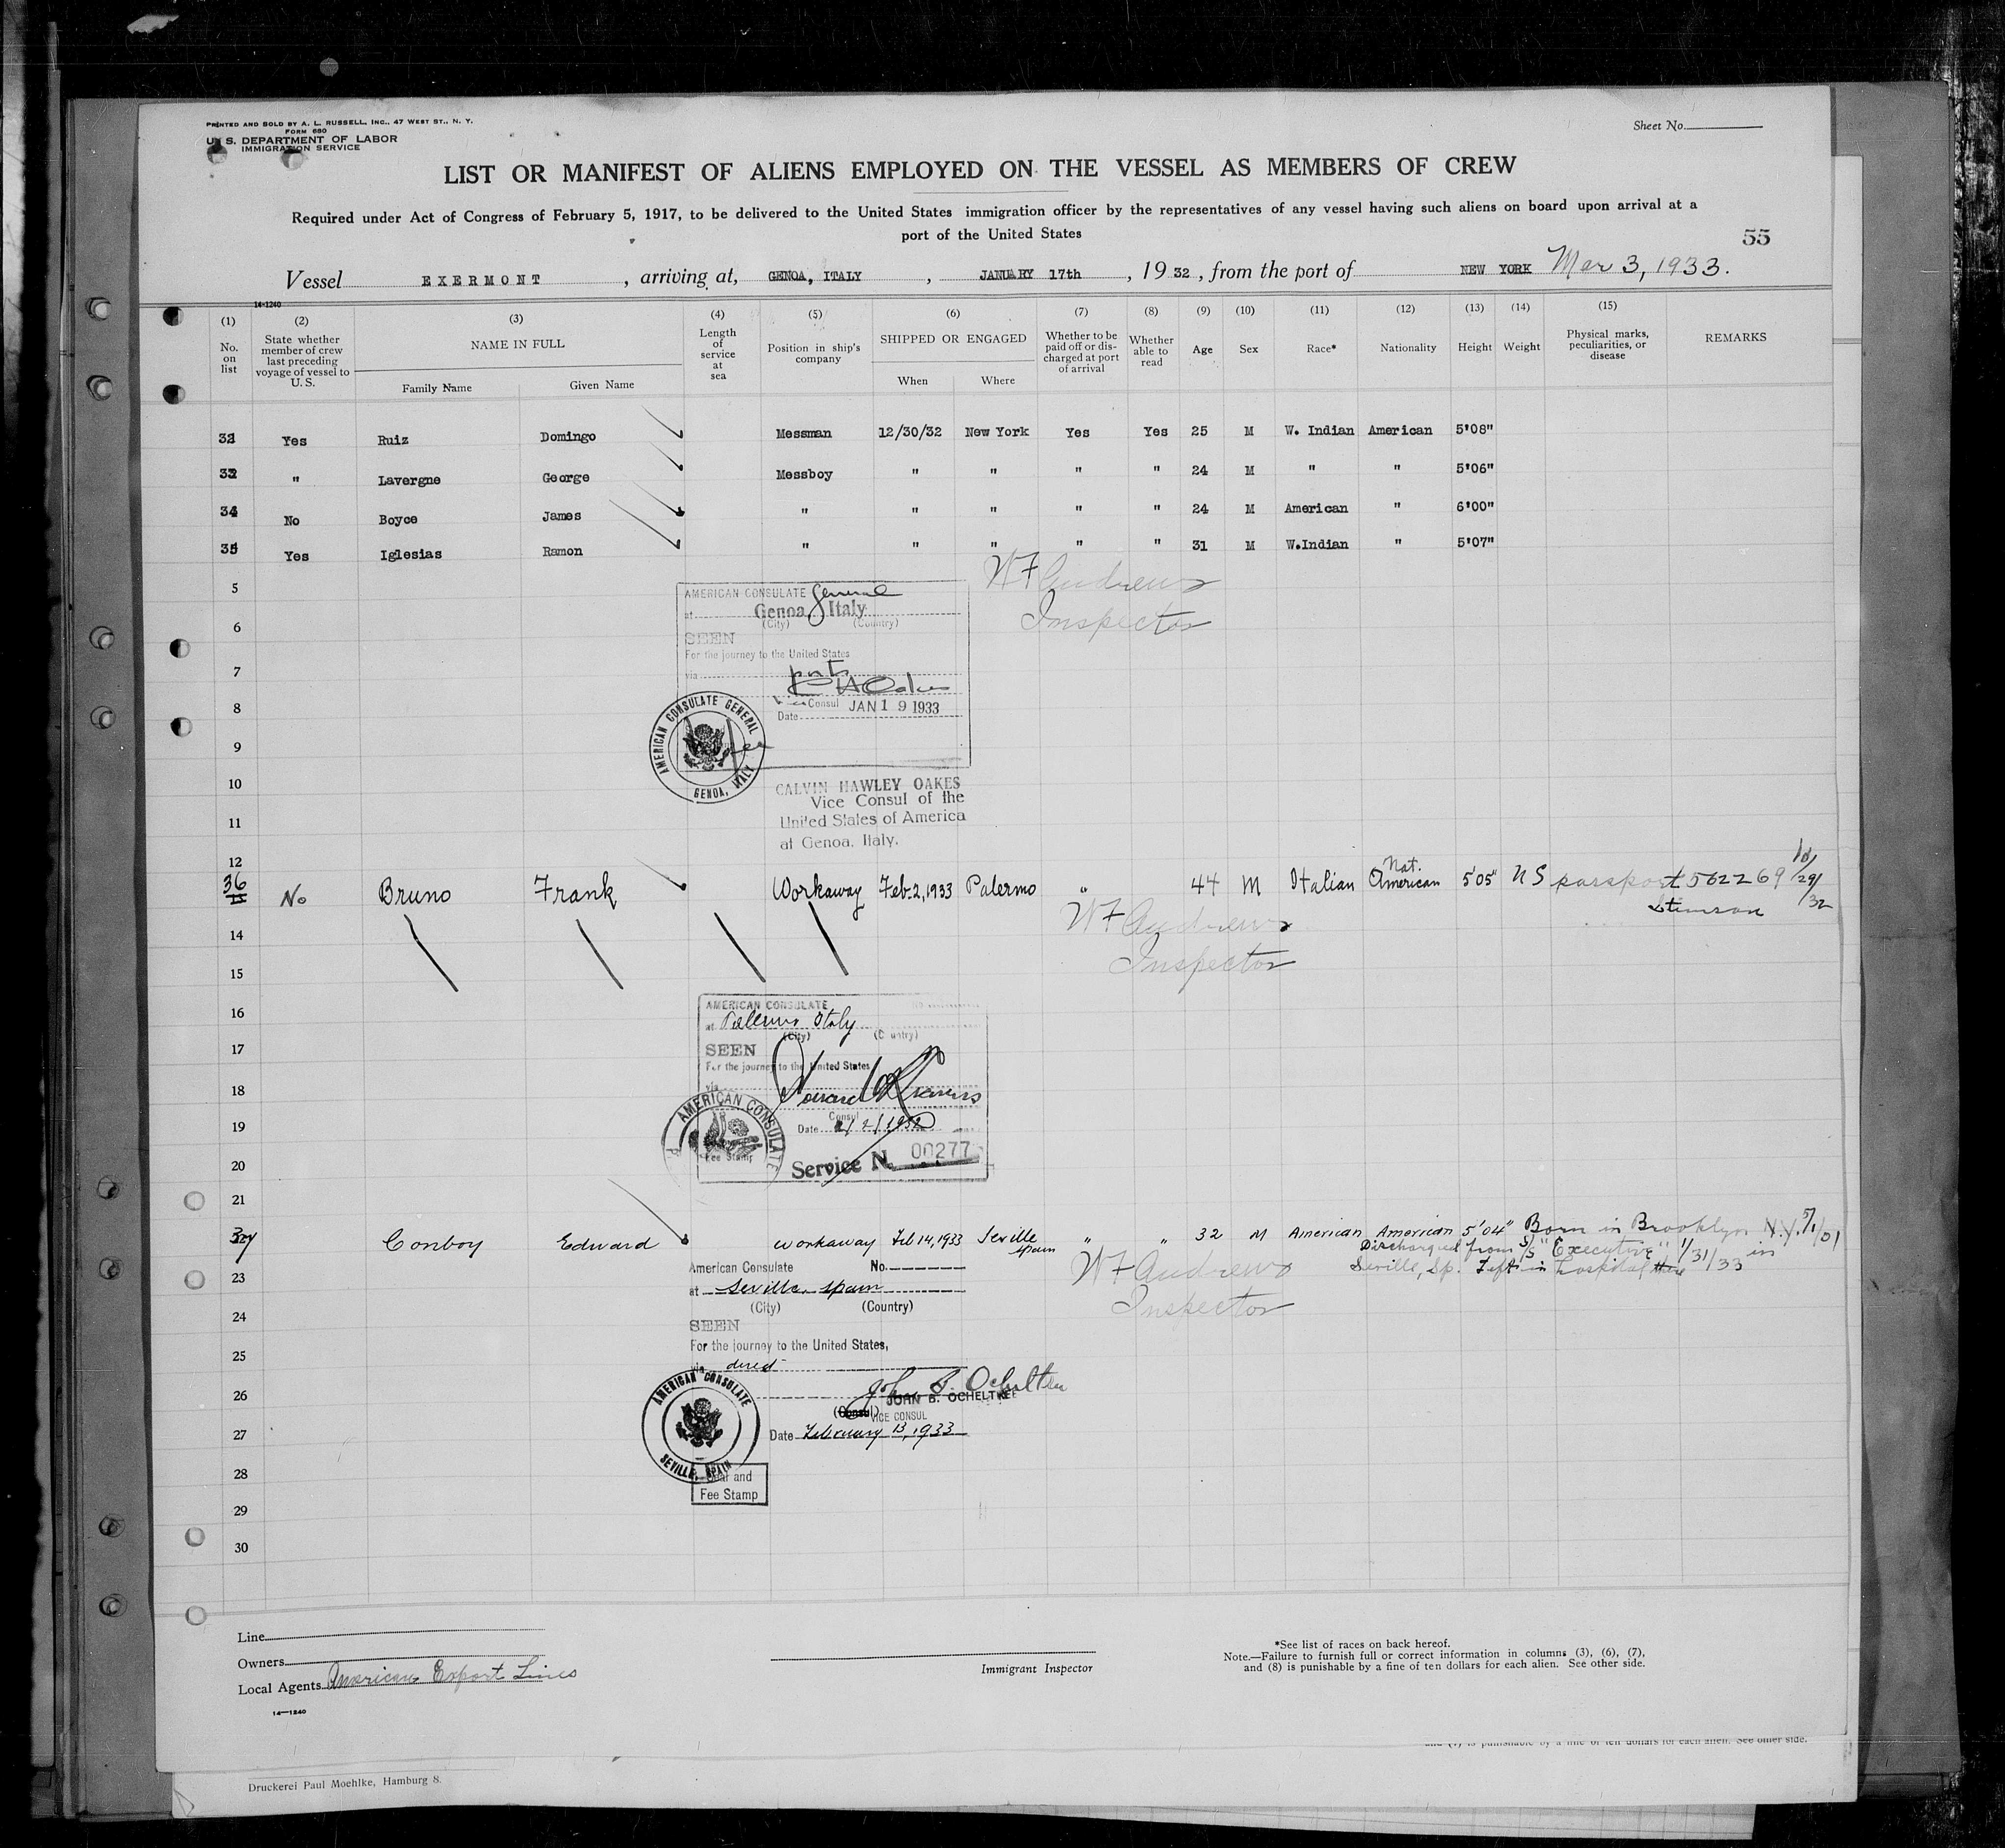 PRINTED AND SOLD BY A. L. RUSSELL, INC., 47 WEST ST., N. Y.
FORM 680
U. S. DEPARTMENT OF LABOR
IMMIGRATION SERVICE
Sheet No.
LIST OR MANIFEST OF ALIENS EMPLOYED ON THE VESSEL AS MEMBERS OF CREW
Required under Act of Congress of February 5, 1917, to be delivered to the United States immigration officer by the representatives of any vessel having such aliens on board upon arrival at a
port of the United States
55
Vessel EXERMONT, arriving at, GENOA, ITALY, JANUARY 17th, 1932, from the port of NEW YORK Mar 3, 1933.
14-1240
(1) (2) (3) (4) (5) (6) (7) (8) (9) (10) (11) (12) (13) (14) (15)
No. on list
State whether member of crew last preceding voyage of vessel to U. S.
NAME IN FULL
Family Name Given Name
Length of service at sea
Position in ship's company
SHIPPED OR ENGAGED
When Where
Whether to be paid off or discharged at port of arrival
Whether able to read
Age
Sex
Race*
Nationality
Height
Weight
Physical marks, peculiarities, or disease
REMARKS
Yes Ruiz Domingo Messman 12/30/32 New York Yes Yes 25 M W. Indian American 5'08"
" Lavergne George Messboy " " " " 24 M " " 5'06"
34 No Boyce James " " " " " 24 M American " 6'00"
35 Yes Iglesias Ramon " " " " " 31 M W.Indian " 5'07"
W F Andrews
Inspector
5
6
7
8
9
10
11
12
AMERICAN CONSULATE General
at Genoa, Italy
(City) (Country)
SEEN
For the journey to the United States
via ports
C H Oakes
Vice Consul
Date JAN 19 1933
AMERICAN CONSULATE GENERAL
GENOA, ITALY
CALVIN HAWLEY OAKES
Vice Consul of the
United States of America
at Genoa, Italy.
36 No Bruno Frank Workaway Feb-2, 1933 Palermo " 44 M Italian Nat. American 5'05" U S passport 562269 10/29/32
Stimson
W F Andrews
Inspector
14
15
16
17
18
19
20
21
AMERICAN CONSULATE
at Palermo Italy
(City) (Country)
SEEN
For the journey to the United States
via
Consul
Date
AMERICAN CONSULATE
Fee Stamp
Service No. 00277
37 Conboy Edward workaway Feb 14, 1933 Seville Spain " " 32 M American American 5'04" Born in Brooklyn N.Y. 5/1/01
Discharged from S/S "Executive" 1/31/33 in
Seville, Sp. Left in hospital there
W F Andrews
Inspector
23
24
25
26
27
28
29
30
American Consulate No.
at Seville, Spain
(City) (Country)
SEEN
For the journey to the United States,
via direct
John B. Ocheltree
JOHN B. OCHELTREE
(Consul) VICE CONSUL
Date February 13, 1933
AMERICAN CONSULATE
SEVILLE, SPAIN
Seal and
Fee Stamp
Line
Owners
Local Agents American Export Lines
14—1240
Immigrant Inspector
*See list of races on back hereof.
Note.—Failure to furnish full or correct information in columns (3), (6), (7),
and (8) is punishable by a fine of ten dollars for each alien. See other side.
and (7) is punishable by a fine of ten dollars for each alien. See other side.
Druckerei Paul Moehlke, Hamburg 8.